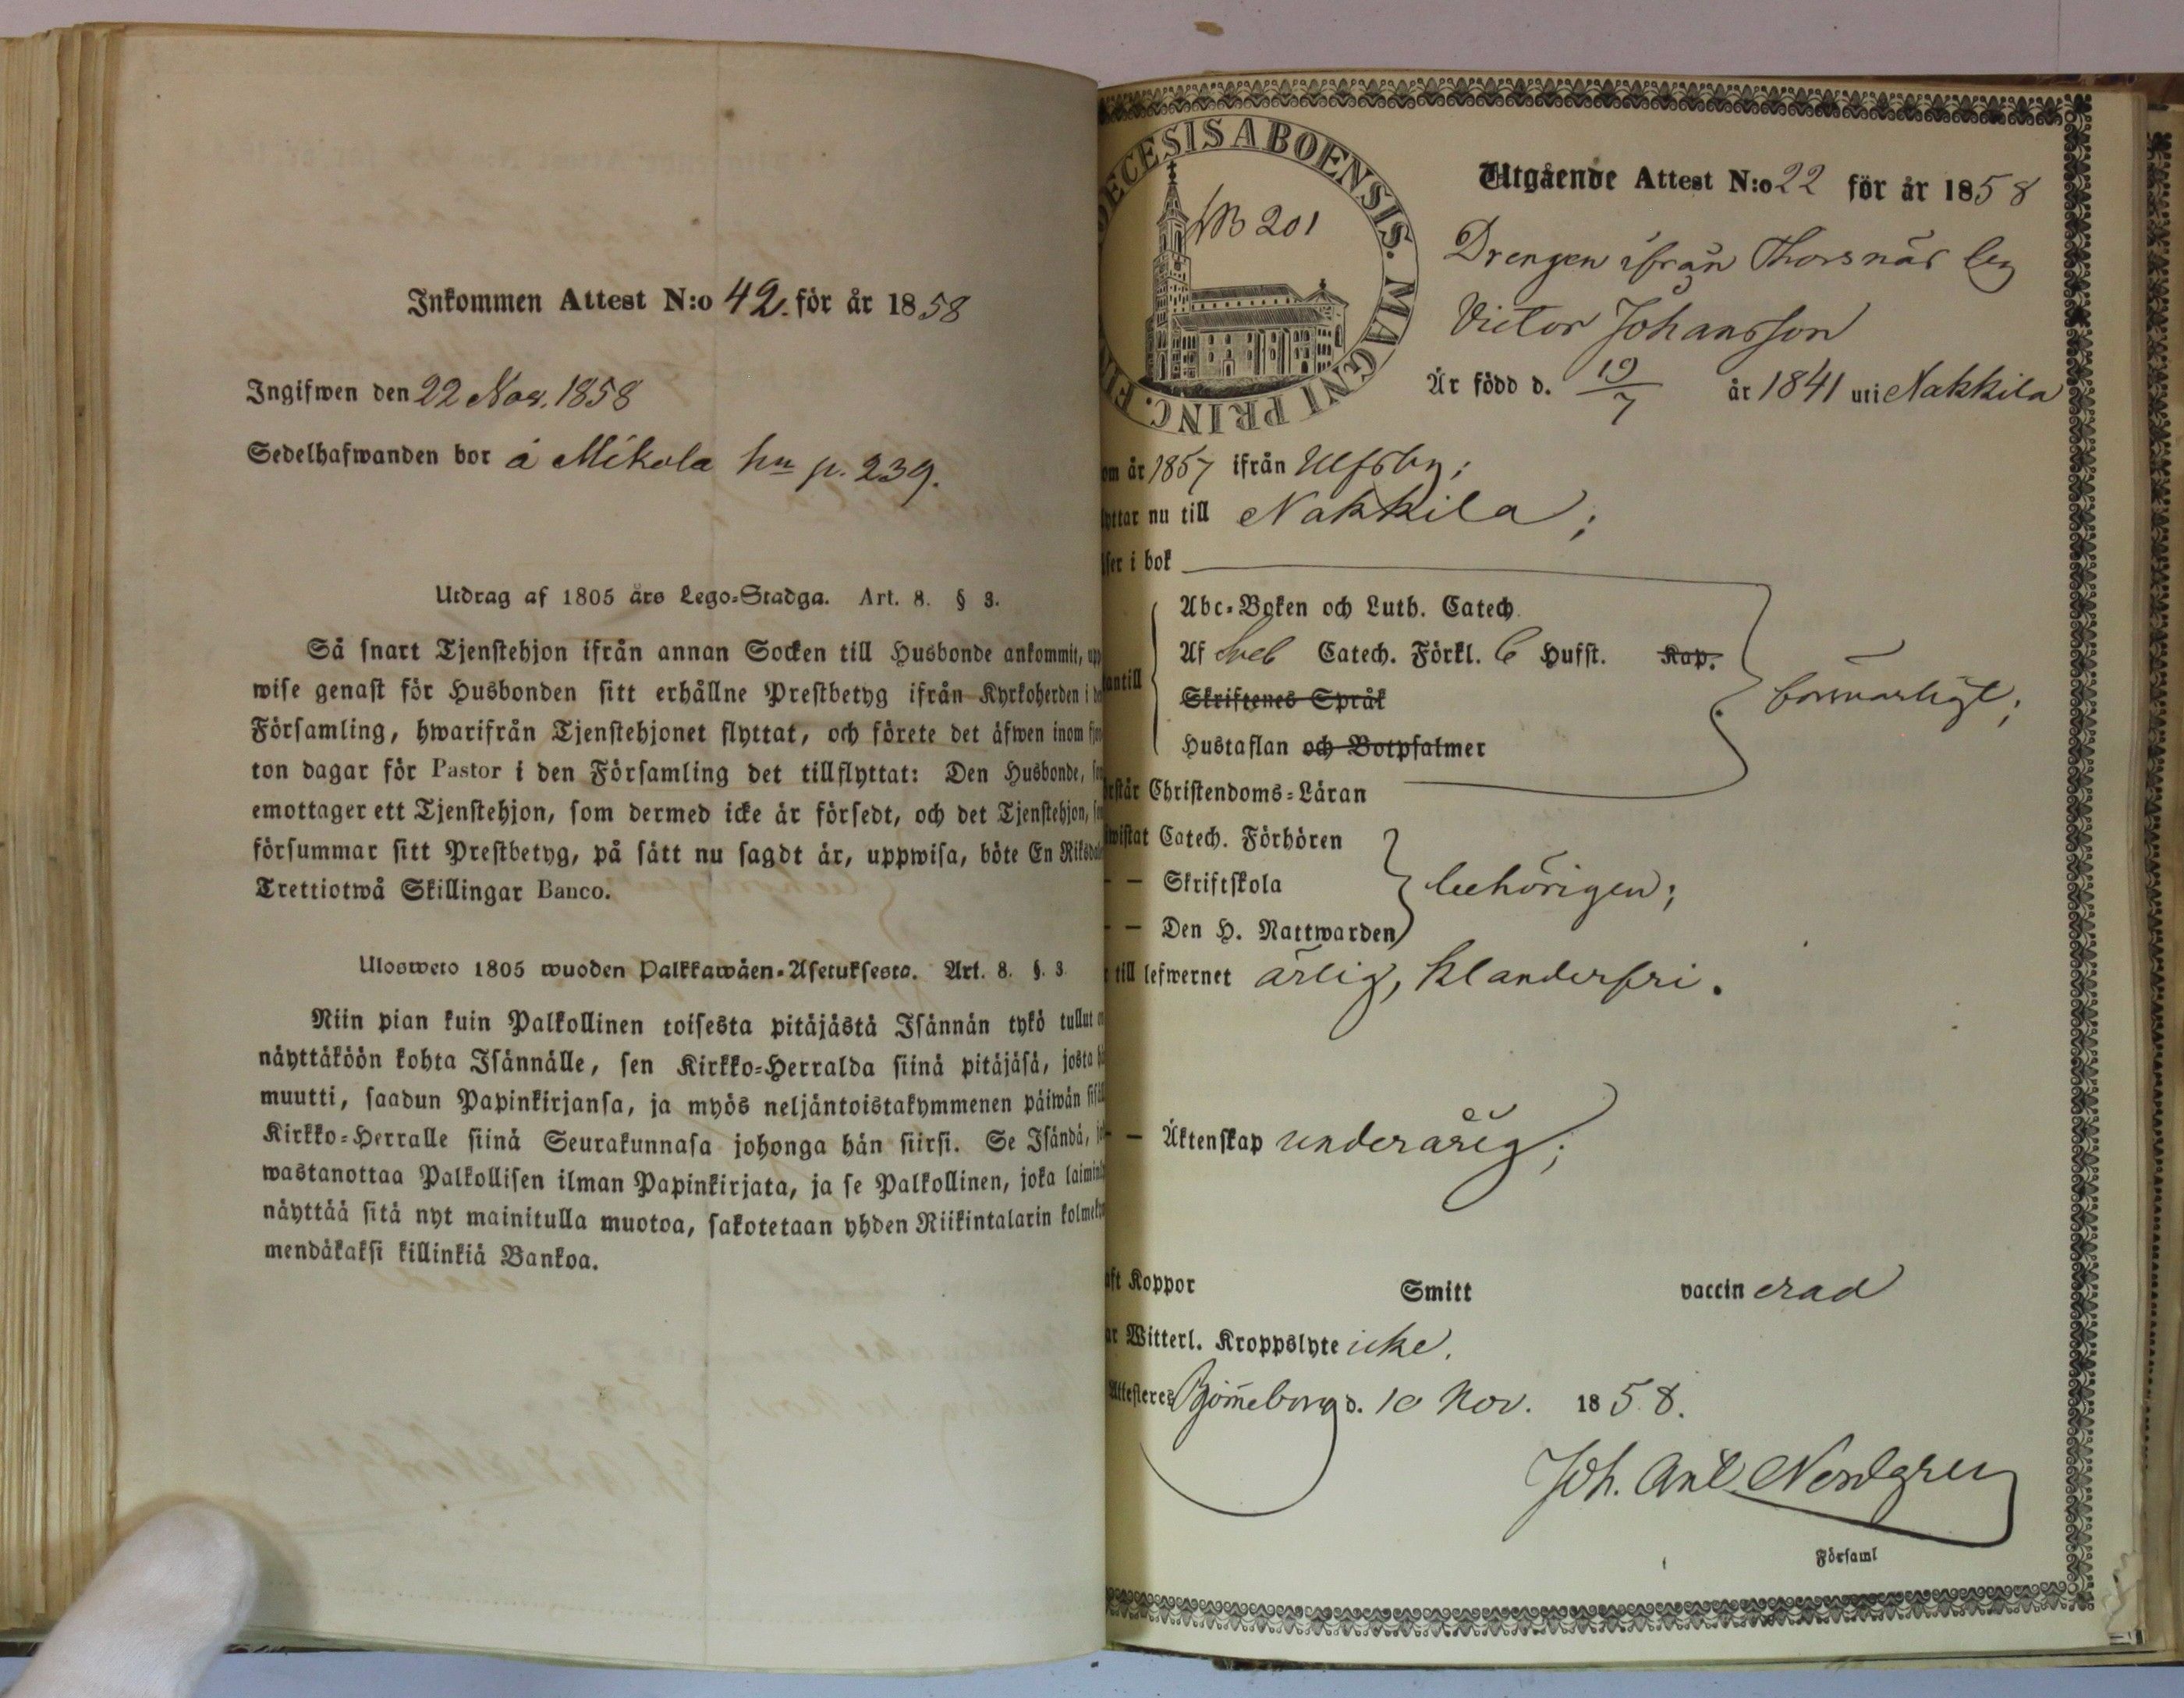 Inkommen Attest N:o 42. för år 1858
Ingifwen den 22 Nov. 1858
Sedelhafwanden bor å Mikola hn p. 239.
Utdrag af 1805 års Lego-Stadga. Art. 8. § 3.
Så snart Tjenstehjon ifrån annan Socken till Husbonde ankommit, upp
wise genast för Husbonden sitt erhållne Prestbetyg ifrån Kyrkoherden i
Församling, hwarifrån Tjenstehjonet flyttat, och förete det äfwen inom
ton dagar för Pastor i den Församling det tillflyttat: Den Husbonde,
emottager ett Tjenstehjon, som dermed icke är försedt, och det Tjenstehjon,
försummar sitt Prestbetyg, på sätt nu sagdt är, uppwisa, böte En Riksdal
Trettiotwå Skillingar Banco.
Ulosweto 1805 wuoden Palkkawäen-Asetuksesta. Art. 8. §. 3.
Niin pian kuin Palkollinen toisesta pitäjästä Isännän tykö tullut
näyttäköön kohta Isännälle, sen Kirkko-Herralda siinä pitäjäsä, josta
muutti, saadun Papinkirjansa, ja myös neljäntoistakymmenen päiwän
Kirkko-Herralle siinä Seurakunnasa johonga hän siirsi. Se Isändä,
wastanottaa Palkollisen ilman Papinkirjata, ja se Palkollinen, joka laimin
näyttää sitä nyt mainitulla muotoa, sakotetaan yhden Riikintalarin kolmeky
mendäkaksi killinkiä Bankoa.
ECESIS ABOENSIS. MAGNI PRINC. FI
NB 201
Utgående Attest N:o 22 för år 1858
Drengen ifrån Thorsnäs by
Victor Johansson
Är född d. 19/7 år 1841 uti Nakkila
om år 1857 ifrån Ulfsby;
yttar nu till Nakkila;
ser i bok
Abc-Boken och Luth. Catech.
Af Sveb Catech. Förkl. 6 Hufst. Kap.
antill
Skriftenes Språk
Hustaflan och Botpsalmer
försvarligt;
rstår Christendoms-Läran
wistat Catech. Förhören
— — Skriftskola
behörigen;
— — Den H. Nattwarden
till lefwernet ärlig, klanderfri.
— — Äktenskap underårig;
aft Koppor Smitt vaccinerad
ar Witterl. Kroppslyte icke.
Attesteres Björneborg d. 10 Nov. 1858.
Joh. Ant. Nordgren
Församl